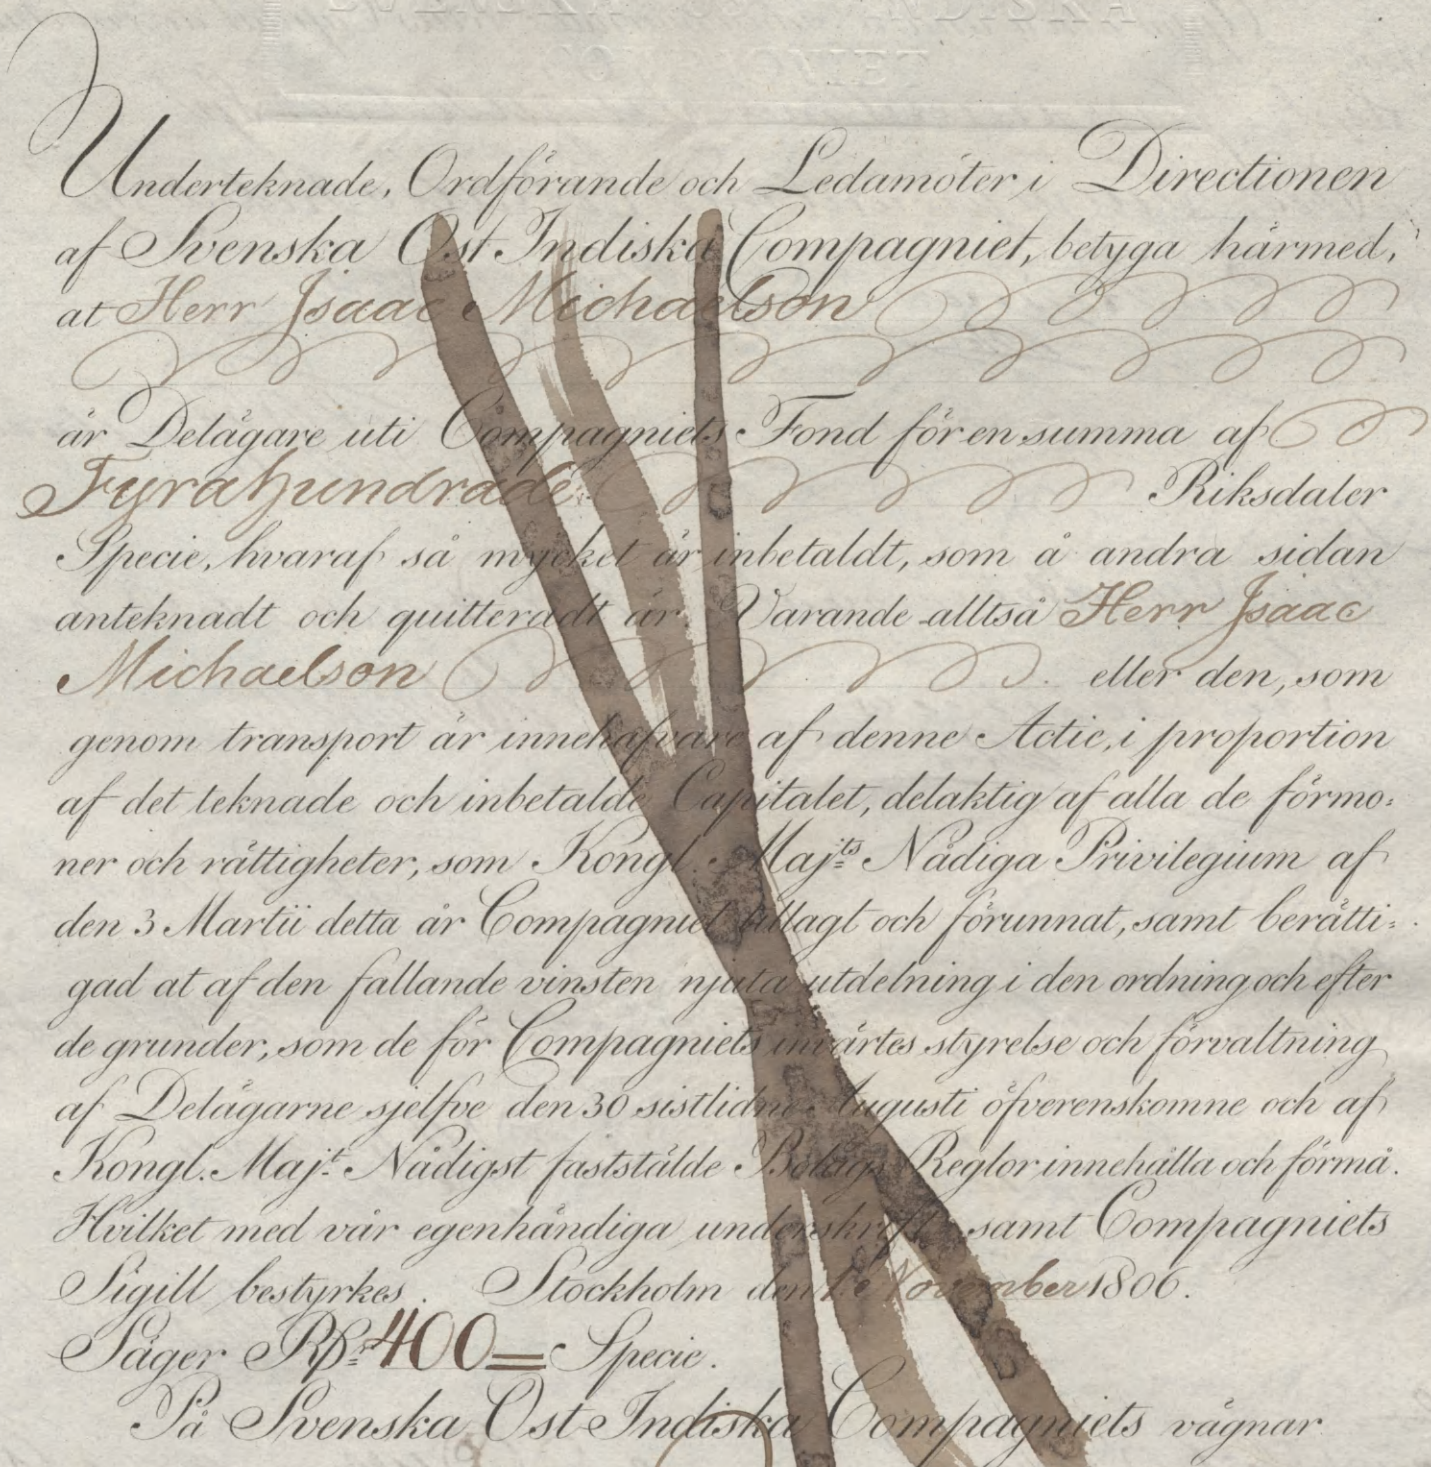 SVENSKA OST INDISKA
COMPAGNIET
Underteknade, Ordförande och Ledamöter i Directionen
af Svenska Ost Indiska Compagniet, betyga härmed,
at Herr Isaac Michaelson
är Delägare uti Compagniets Fond för en summa af
Fyrahundrade Riksdaler
Specie, hvaraf så mycket är inbetaldt, som å andra sidan
anteknadt och quitteradt är. Varande alltså Herr Isaac
Michaelson eller den, som
genom transport är innehafvare af denne Actie, i proportion
af det teknade och inbetalde Capitalet, delaktig af alla de förmo=
ner och rättigheter, som Kongl. Maj:ts Nådiga Privilegium af
den 3 Martii detta år Compagniet tillagt och förunnat, samt berätti=
gad at af den fallande vinsten njuta utdelning i den ordning och efter
de grunder, som de för Compagniets invärtes styrelse och förvaltning
af Delägarne sjelfve den 30 sistlidne Augusti öfverenskomne och af
Kongl. Maj:t Nådigst faststälde Bolags Reglor innehålla och förmå.
Hvilket med vår egenhändiga underskrift samt Compagniets
Sigill bestyrkes. Stockholm den 1. November 1806.
Säger Rd:r 400= Specie.
På Svenska Ost Indiska Compagniets vägnar